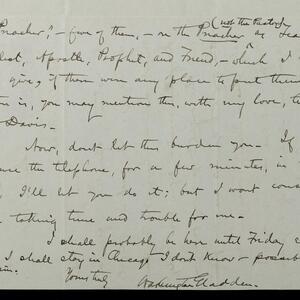 (not the Pastor)
Preacher", - five of them, - on the Preacher as Lea
list, Apostle, Prophet, and Friend, - which I
give, if there were any place to put them
n is, you may mention this, with my love, t
Davis -
Now, dont let this burden you. If
use the telephone, for a few minutes, in
I'll let you do it; but I wont cons
taking time and trouble for me -
I shall probably be here until Friday
I shall stay in Chicago I don't know - possib
Yours truly
Washington Gladden.